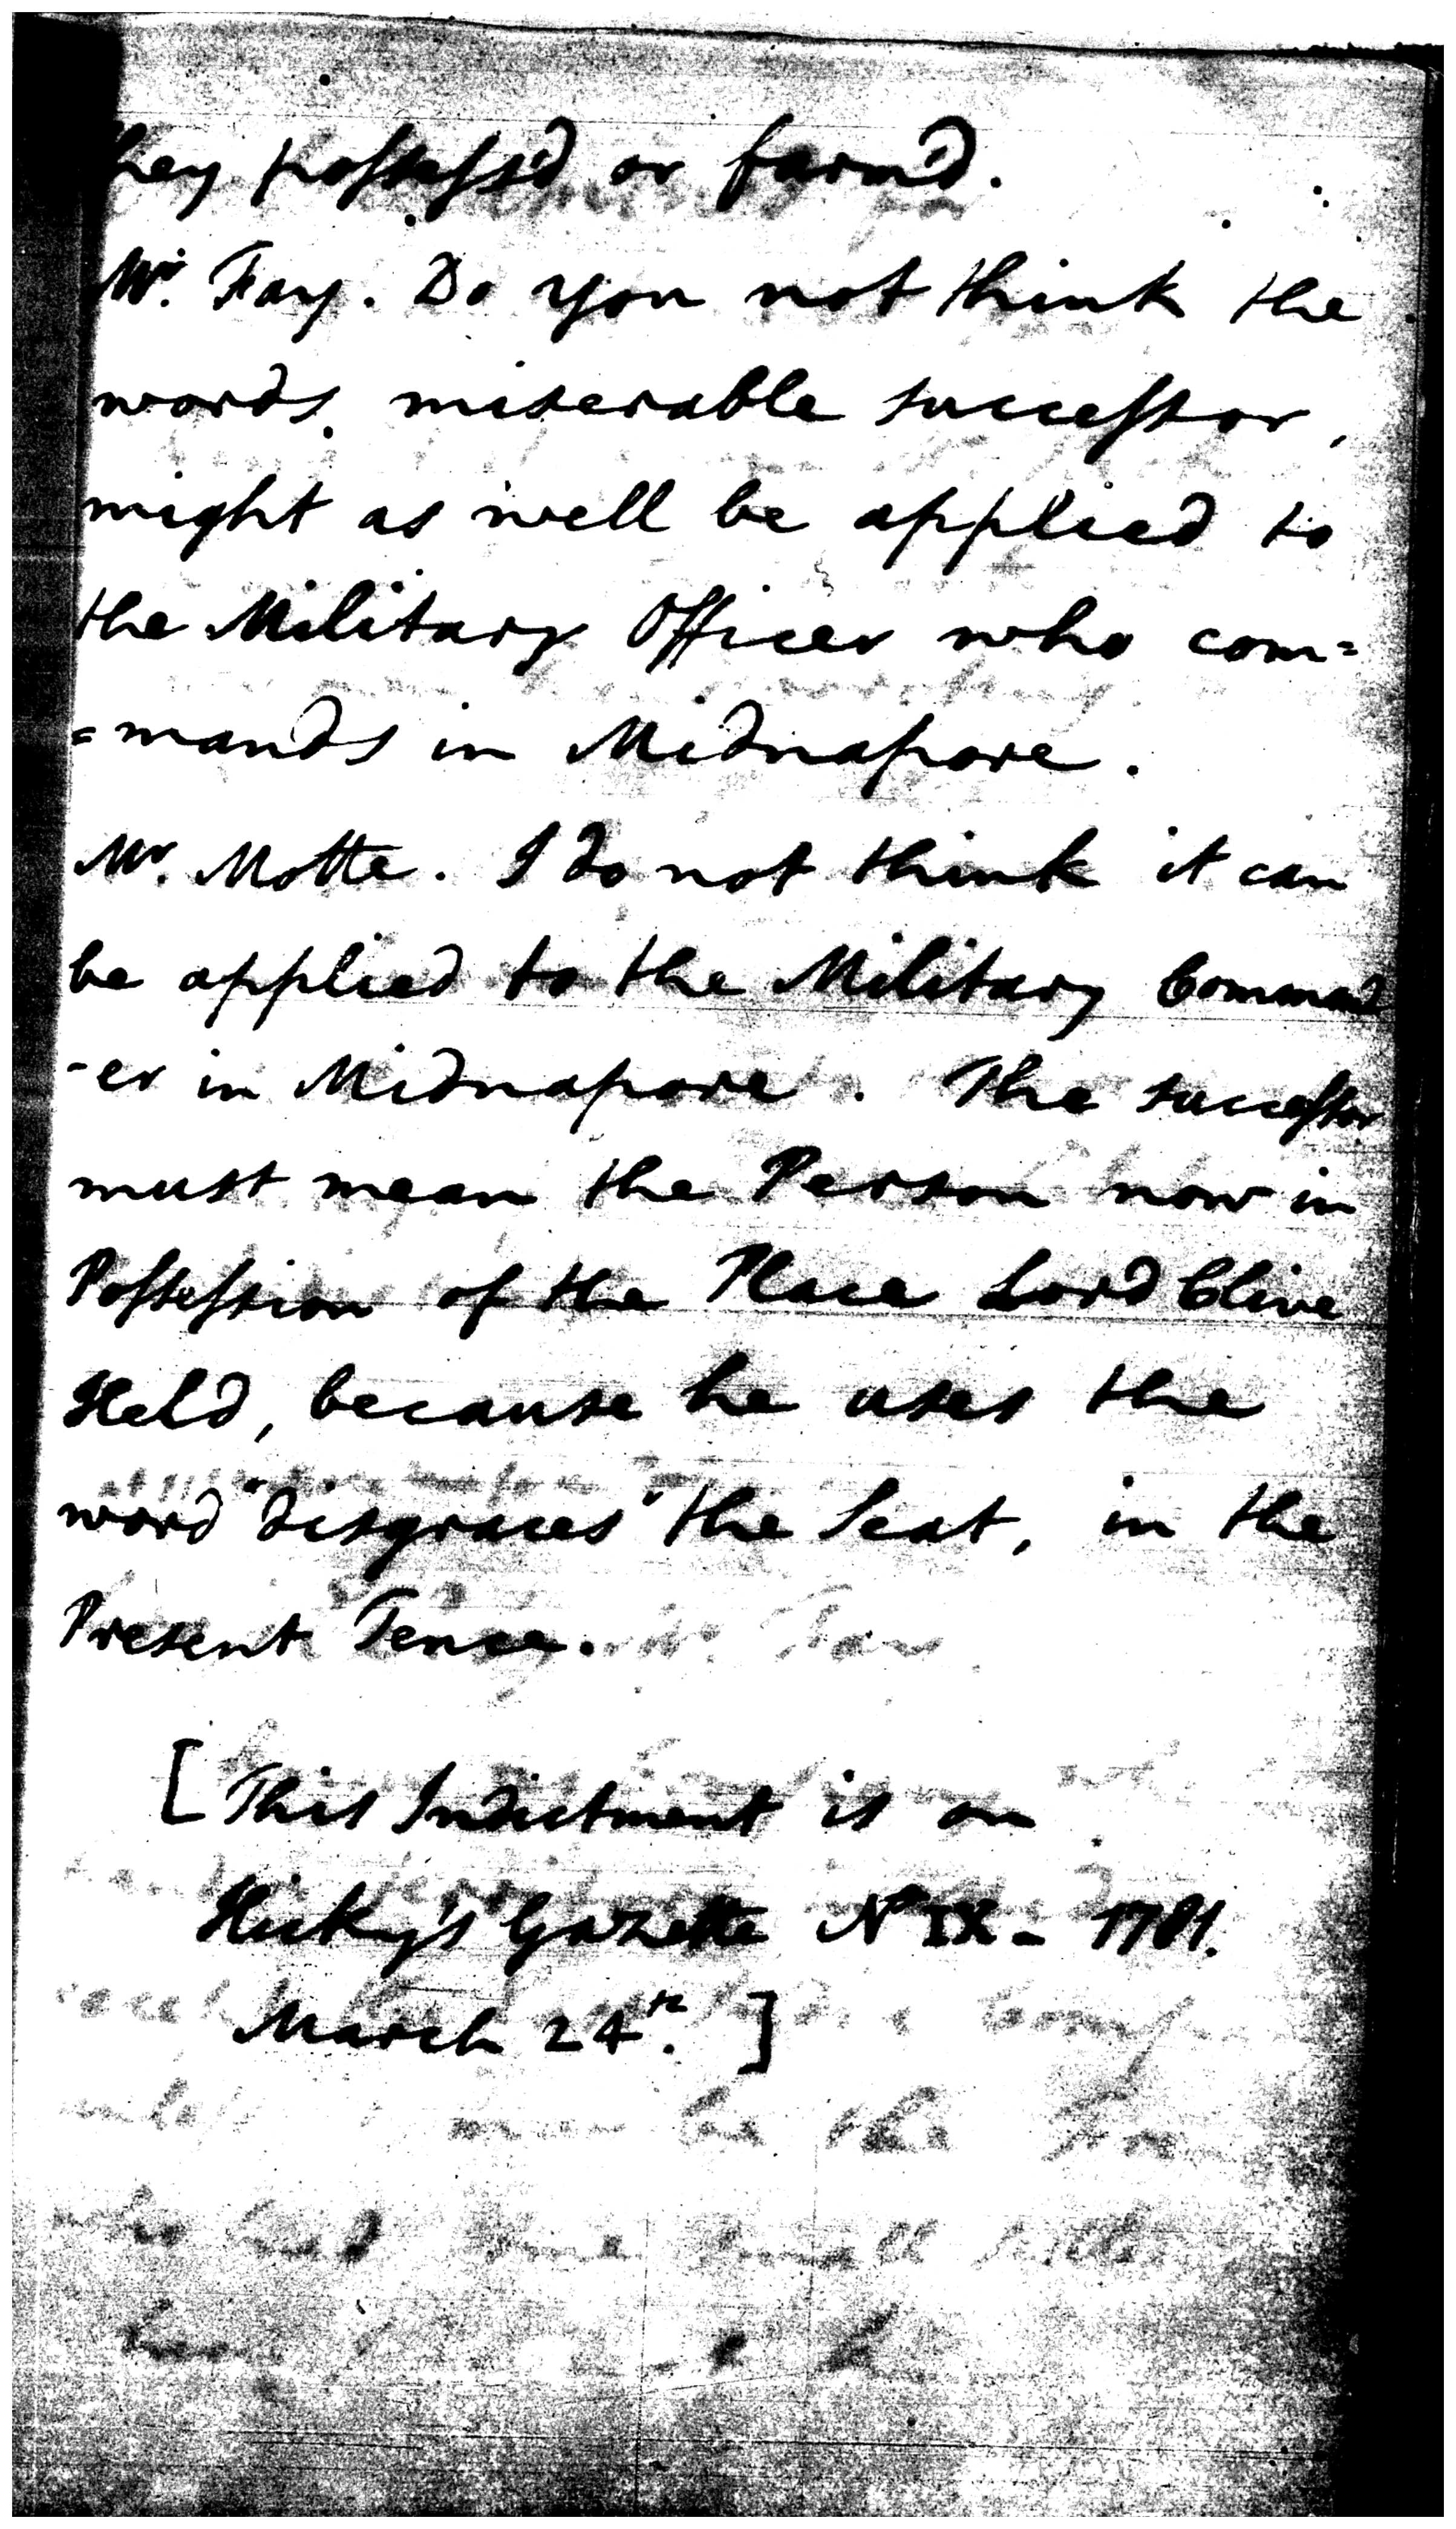 they possess'd or farm'd.
Mr. Fay. Do you not think the
words miserable successor,
might as well be applied to
the Military Officer who com=
=mands in Midnapore.
Mr. Motte. I do not think it can
be applied to the Military Command
-er in Midnapore. The successor
must mean the Person now in
Possession of the Place Lord Clive
Held, because he uses the
word "disgraces" the Seat, in the
Present Tence.
[This Indictment is on
Hicky's Gazette No IX - 1781.
March 24th.]